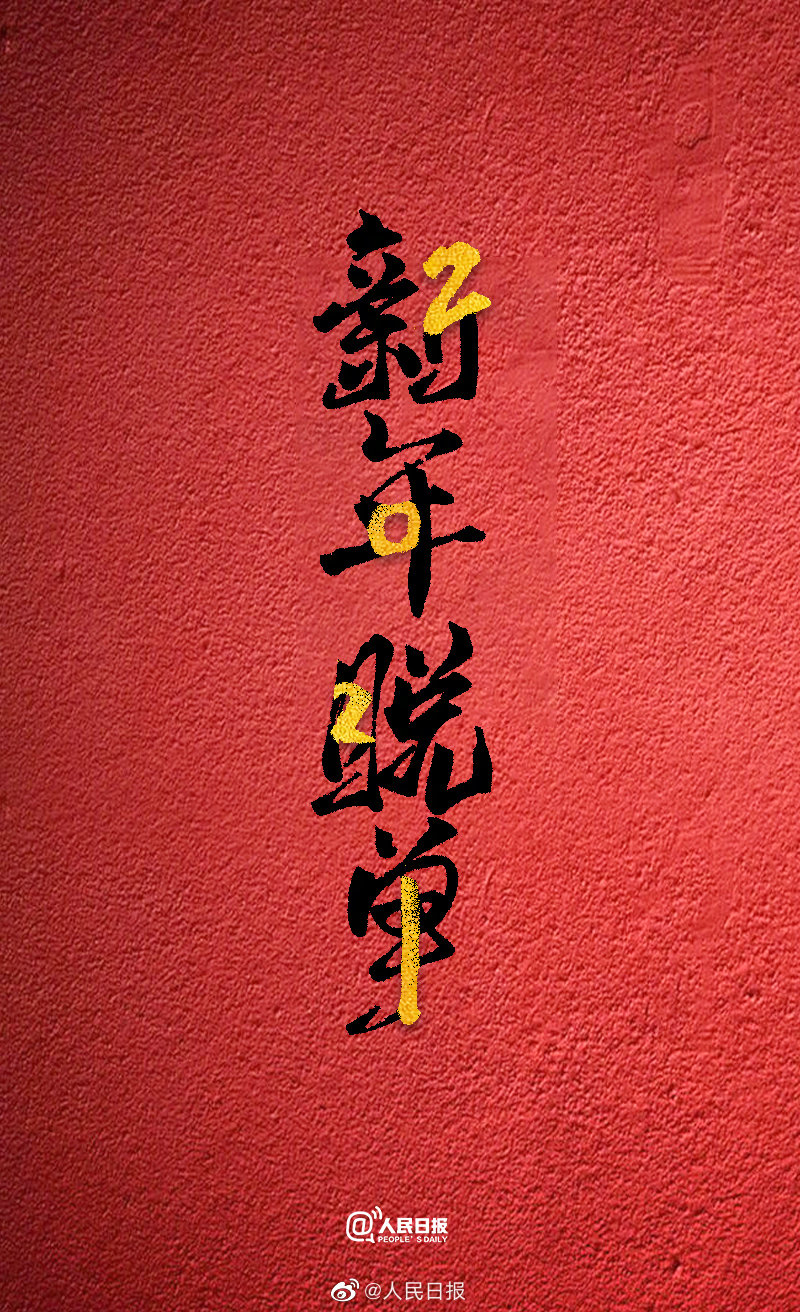 新年脱单
@人民日报
PEOPLE'S DAILY
@人民日报